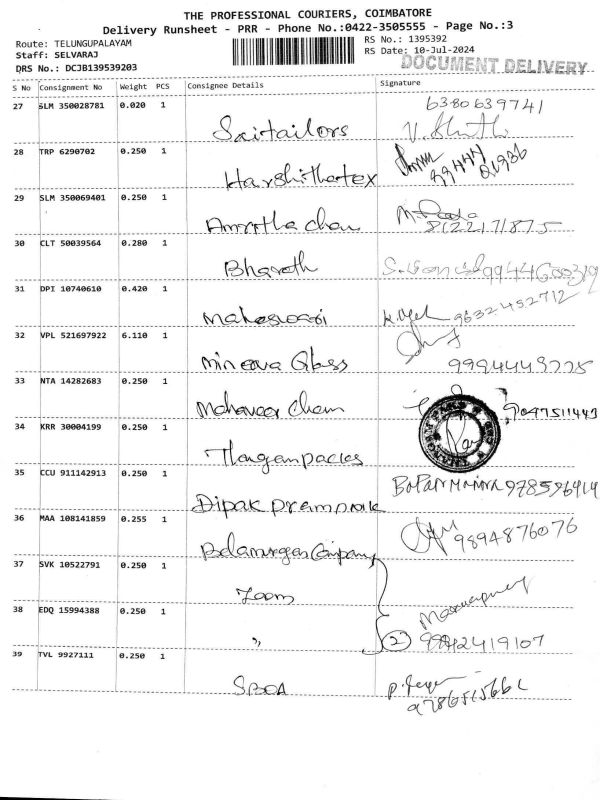 THE PROFESSIONAL COURIERS, COIMBATORE
Delivery Runsheet - PRR - Phone No.:0422-3505555 - Page No.:3
Route: TELUNGUPALAYAM
RS No.: 1395392
Staff: SELVARAJ
RS Date: 10-Jul-2024
DRS No.: DCJB139539203
DOCUMENT DELIVERY
S No Consignment No Weight PCS Consignee Details Signature
27 SLM 350028781 0.020 1
6380639741
Saitailors
28 TRP 6290702 0.250 1
Harshithatex
29 SLM 350069401 0.250 1
Amrrtha chan
8122171875
30 CLT 50039564 0.280 1
Bharath
31 DPI 10740610 0.420 1
Maheswari
9632452712
32 VPL 521697922 6.110 1
Minerva Glass
33 NTA 14282683 0.250 1
Mahaveer Chem
9047511443
34 KRR 30004199 0.250 1
35 CCU 911142913 0.250 1
Dipak
36 MAA 108141859 0.255 1
9894876076
Balamurgan Company
37 SVK 10522791 0.250 1
Zoom
38 EDQ 15994388 0.250 1
"
2
39 TVL 9927111 0.250 1
SBOA